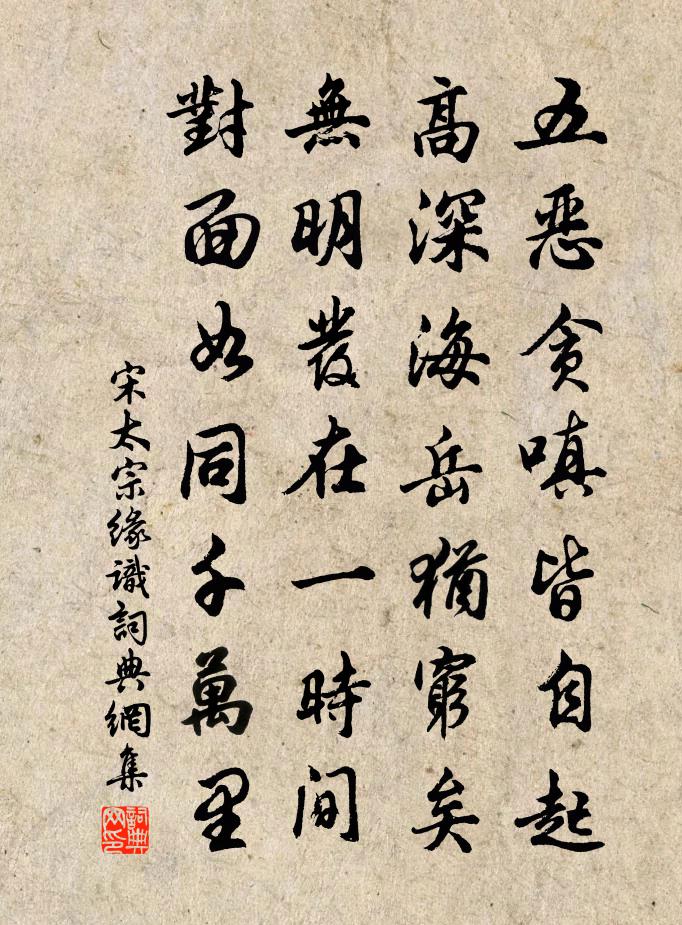 五惡貪嗔皆自起
高深海岳猶窮矣
無明發在一時間
對面如同千萬里
宋太宗緣識詞典網集
詞典
网印